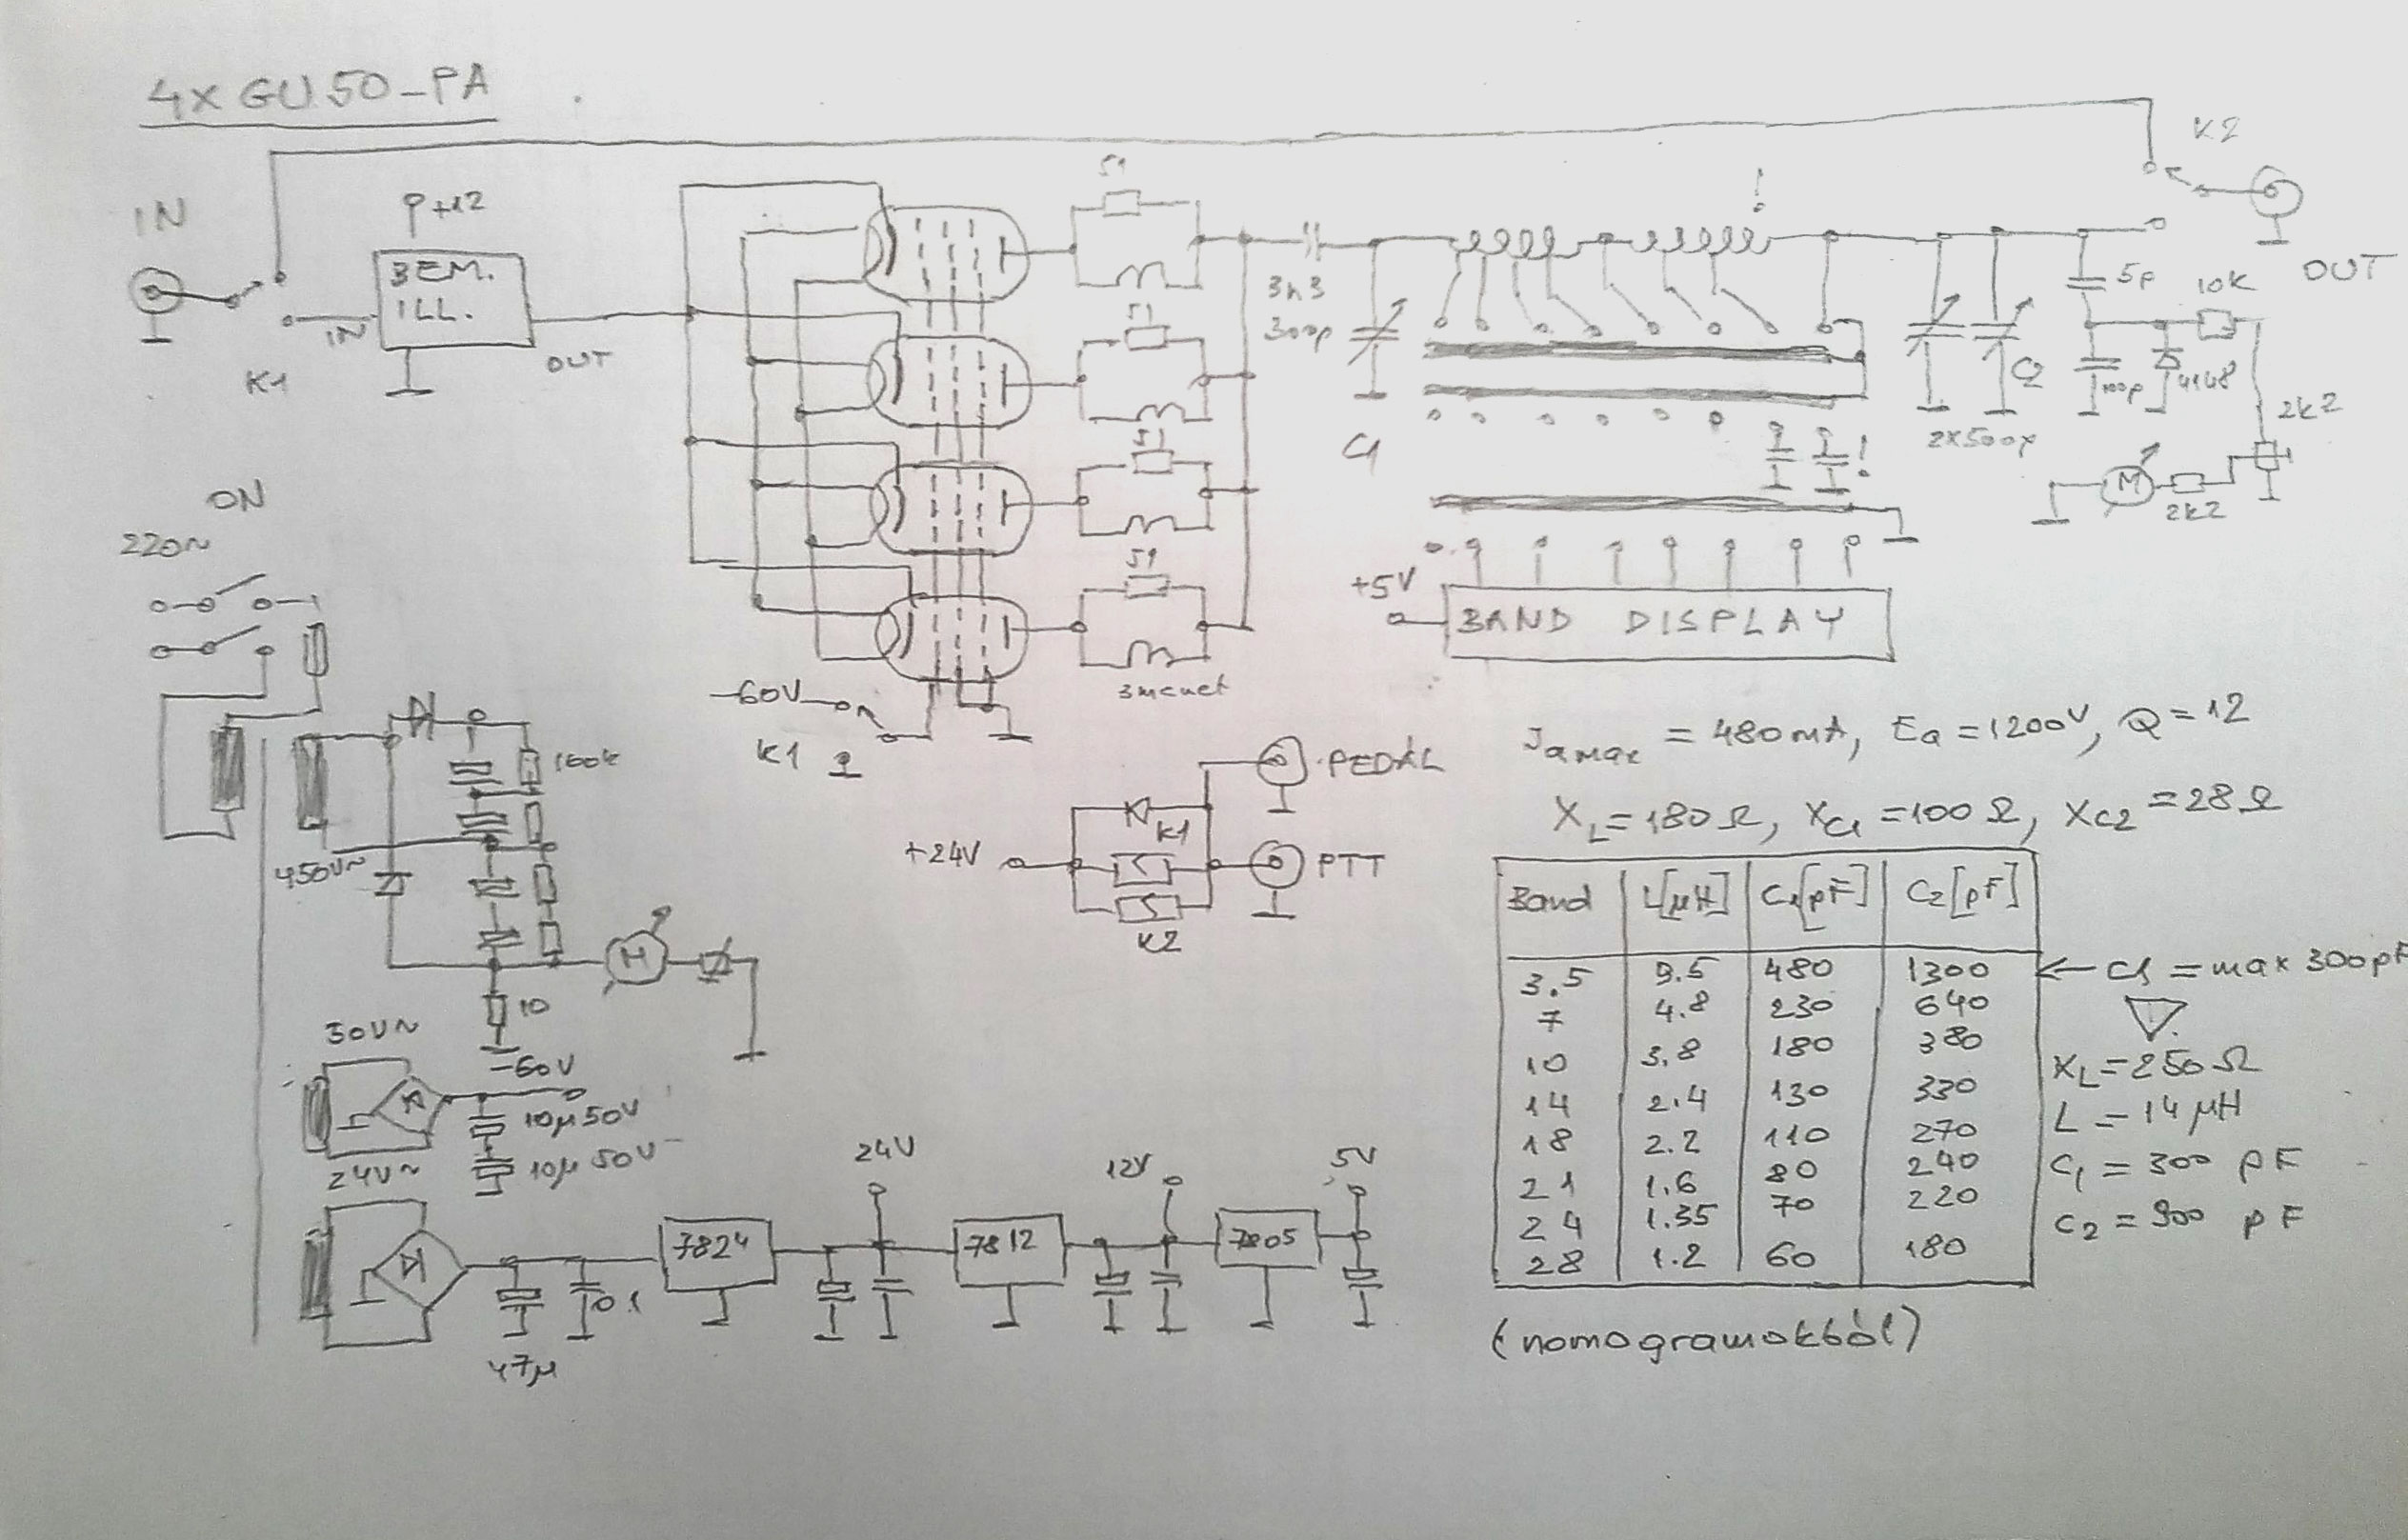 4x GU50-PA
K2
IN
+12
BEM.
ILL.
IN
OUT
K1
51
51
51
51
3menet
3n3
300p
C1
!
5p
10k
OUT
100p
4148
C2
2x500p
2k2
M
2k2
!
ON
220~
+5V
BAND DISPLAY
-60V
K1
PEDÁL
K1
+24V
PTT
K2
100k
450V~
M
10
30V~
-60V
10µ 50V
10µ 50V
24V~
24V
12V
5V
7824
7812
7805
0.1
47µ
Jamax = 480mA, Ea = 1200V, Q = 12
XL = 180Ω, XC1 = 100Ω, XC2 = 28Ω
Band L[µH] C1[pF] C2[pF]
3.5 9.5 480 1300 ← C1 = max 300pF
7 4.8 230 640
10 3.8 180 380
14 2.4 130 330
18 2.2 110 270
21 1.6 80 240
24 1.35 70 220
28 1.2 60 180
XL = 250Ω
L = 14 µH
C1 = 300 pF
C2 = 900 pF
(nomogramokból)